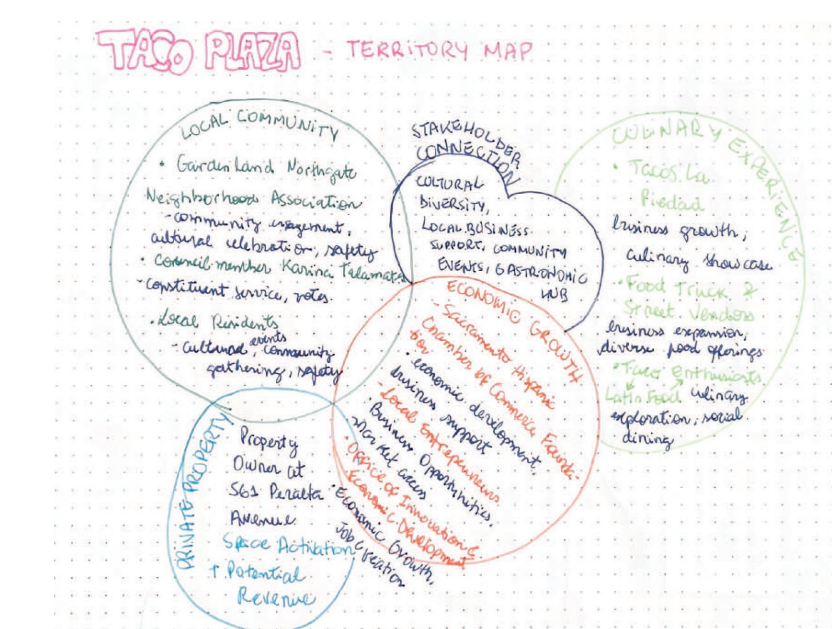 TACO PLAZA - TERRITORY MAP
LOCAL COMMUNITY
• Gardenland Northgate
Neighborhood Association
- community engagement,
cultural celebration, safety
• Councilmember Karina Talamantes
- constituent service, votes.
• Local Residents
- cultural events, community
gathering, safety
STAKEHOLDER
CONNECTION
CULTURAL
DIVERSITY,
LOCAL BUSINESS
SUPPORT, COMMUNITY
EVENTS, GASTRONOMIC
HUB
CULINARY EXPERIENCE
• Tacos La
Piedad
business growth,
culinary showcase
• Food Truck &
Street Vendors
business expansion,
diverse food offerings
• Taco Enthusiasts
Latin Food culinary
exploration, social
dining
ECONOMIC GROWTH
- Sacramento Hispanic
Chamber of Commerce Founda-
tion
• economic development,
business support
- Local Entrepreneurs
• Business Opportunities,
Market access
• Office of Innovation &
Economic Development
• Economic Growth,
Job Creation
PRIVATE PROPERTY
Property
Owner at
561 Peralta
Avenue
Space Activation
↑ Potential
Revenue